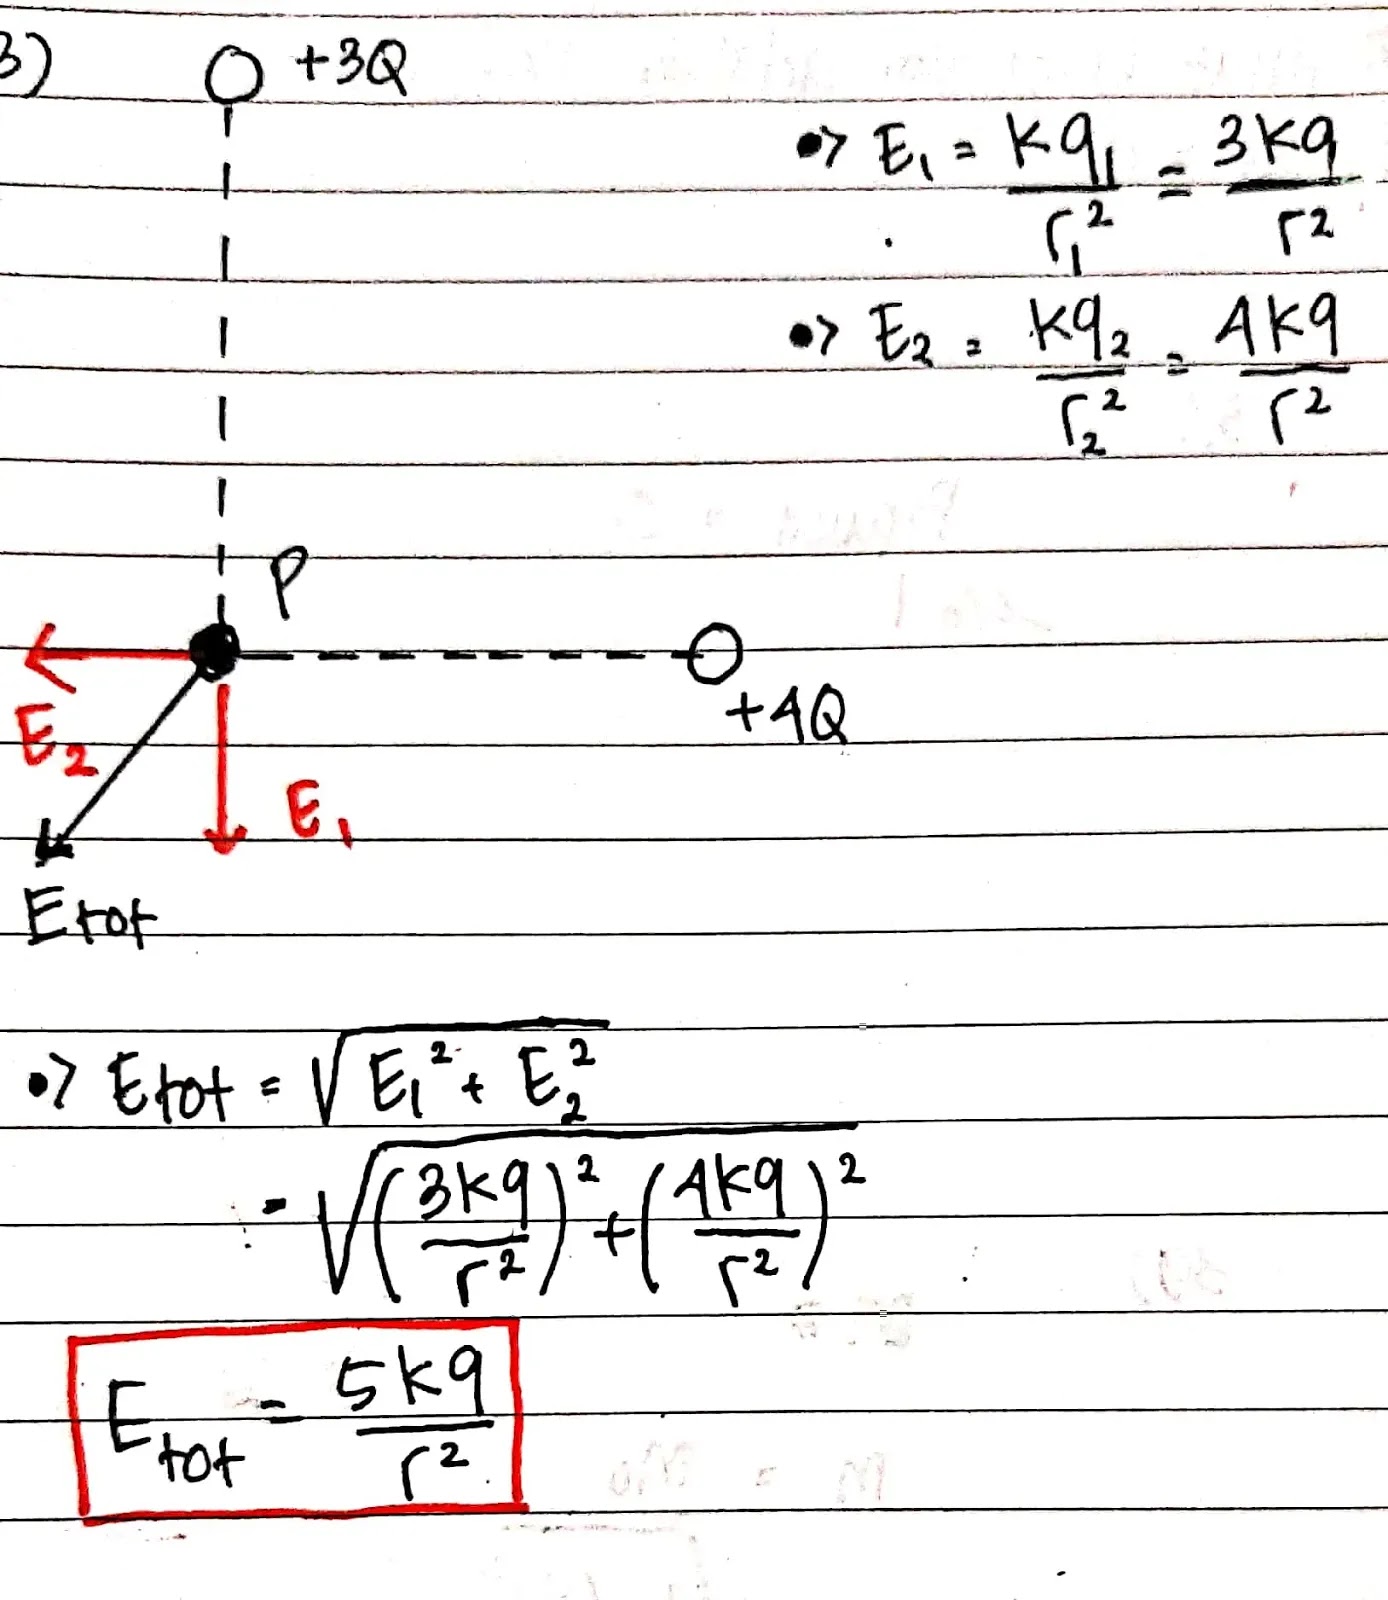 3)
+3Q
•> E₁ = kq₁/r₁² = 3kq/r²
•> E₂ = kq₂/r₂² = 4kq/r²
P
+4Q
E₂
E₁
Etot
•> Etot = √(E₁² + E₂²)
= √((3kq/r²)² + (4kq/r²)²)
Etot = 5kq/r²